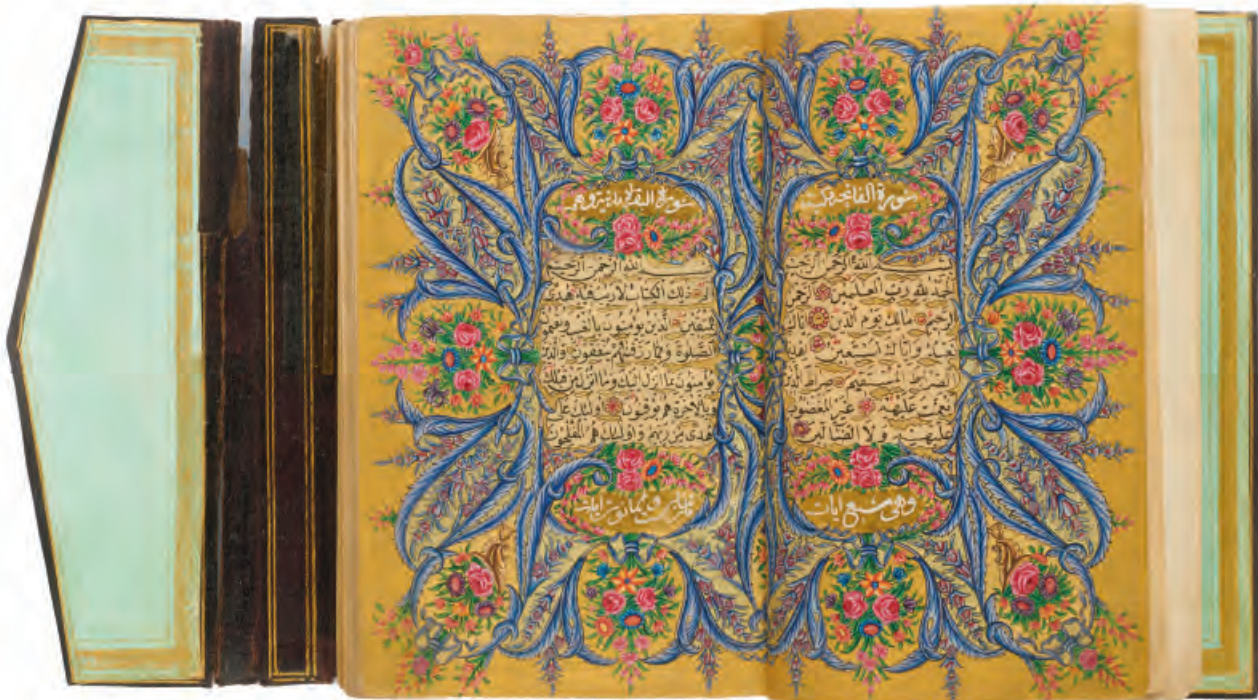 سورة الفاتحة مكية
بسم الله الرحمن الرحيم
الحمد لله رب العلمين الرحمن
الرحيم مالك يوم الدين اياك
نعبد واياك نستعين اهدنا
الصراط المستقيم صراط الذين
انعمت عليهم غير المغضوب
عليهم ولا الضالين
وهي سبع ايات
سورة البقرة مدنية وهي
بسم الله الرحمن الرحيم
الم ذلك الكتاب لا ريب فيه هدى
للمتقين الذين يؤمنون بالغيب ويقيمون
الصلوة ومما رزقناهم ينفقون والذين
يؤمنون بما انزل اليك وما انزل من قبلك
وبالاخرة هم يوقنون اولئك على
هدى من ربهم واولئك هم المفلحون
وثمانون ايات